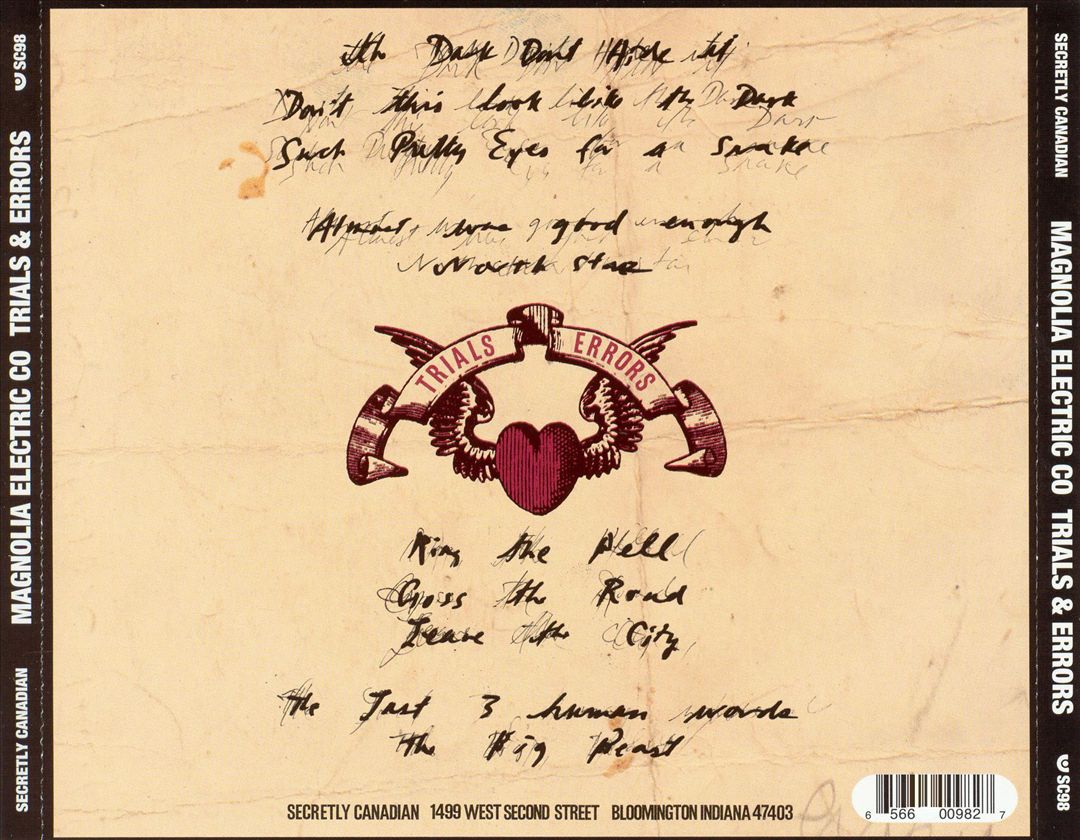 the Dark Don't Hide it
Don't this look like the Dark
Such Pretty Eyes for a Snake
Almost was good enough
North Star
TRIALS ERRORS
Ring the Bell
Cross the Road
Leave the City
the Last 3 human words
the Big Beast
SECRETLY CANADIAN 1499 WEST SECOND STREET BLOOMINGTON INDIANA 47403
6 566 00982 7
SECRETLY CANADIAN MAGNOLIA ELECTRIC CO TRIALS & ERRORS SC98
SECRETLY CANADIAN MAGNOLIA ELECTRIC CO TRIALS & ERRORS SC98